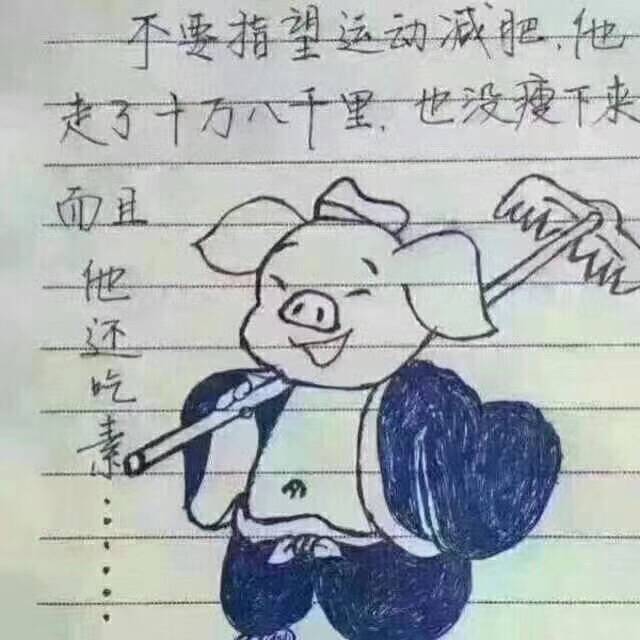 不要指望运动减肥.他
走了十万八千里.也没瘦下来
而且他还吃素......